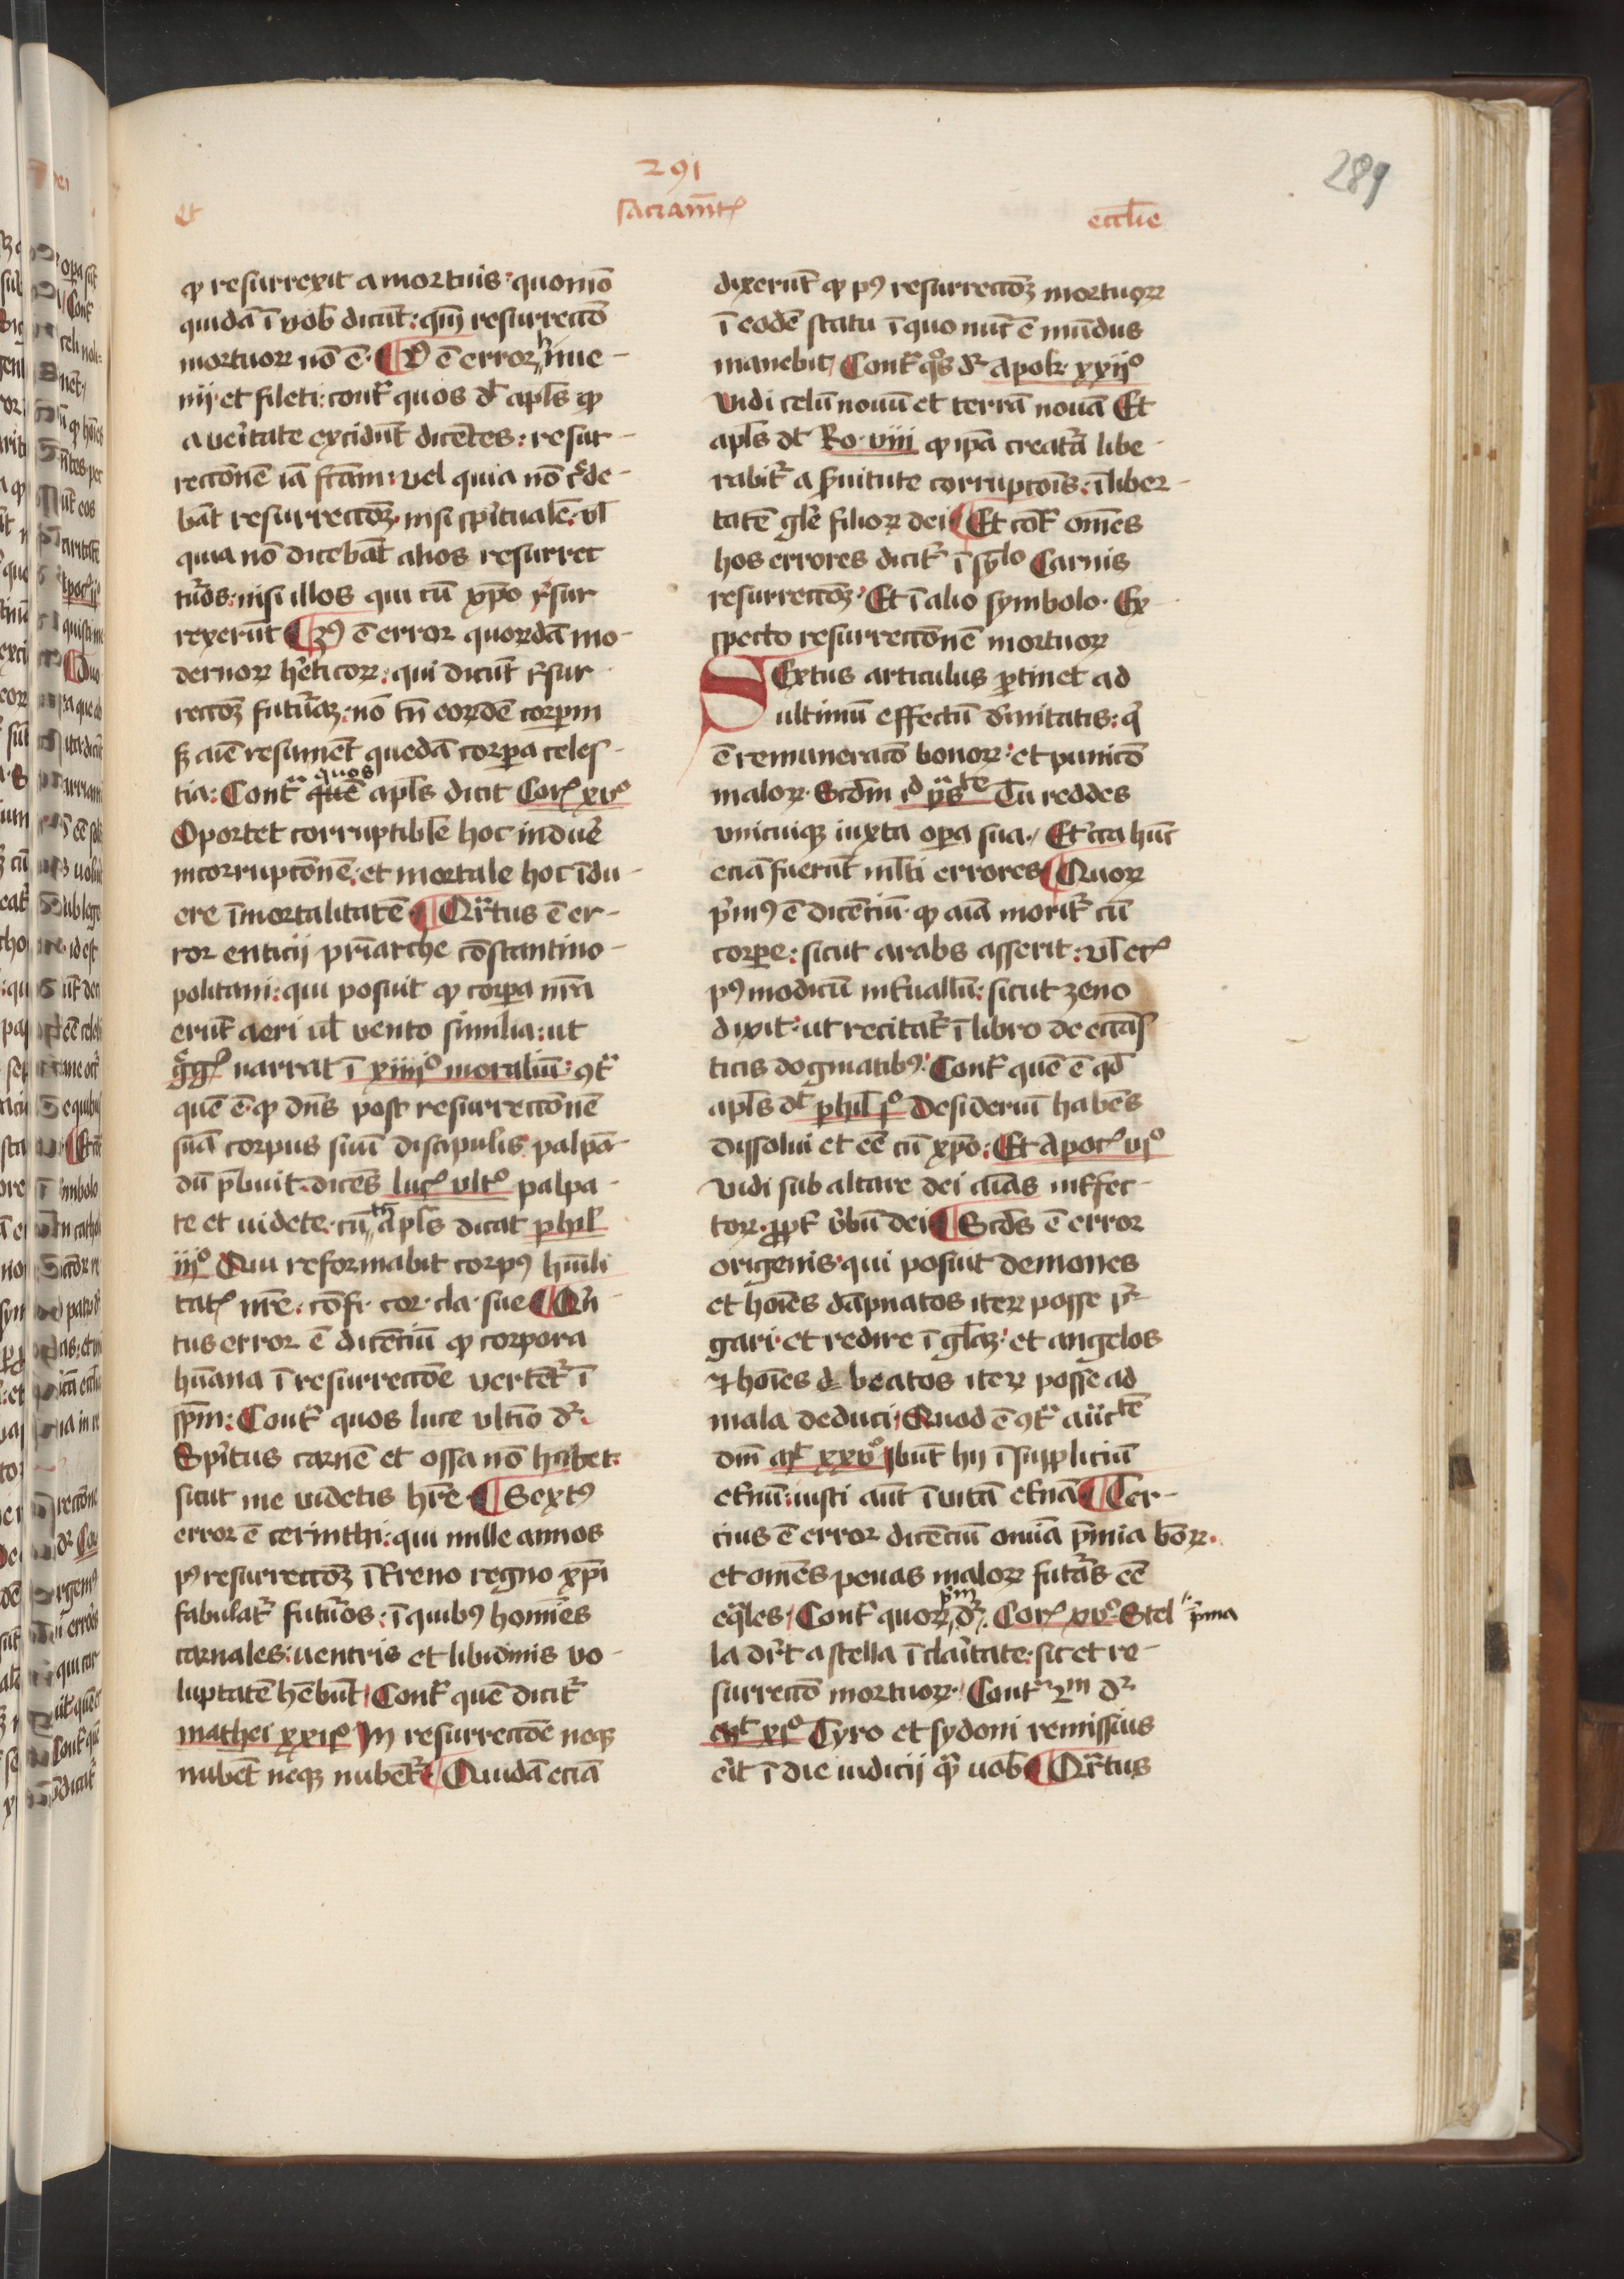 291
289
et sacramēt ecclīe
ꝙ resurrexit a mortuis: quomō
quidā ī vob̄ dicūt: qm̄ resurrectō
mortuoꝝ nō ē. ¶ 2ꝰ ē error hime-
nij. et fileti: contͬ quos dt̄ apl̄s ꝙ
a veritate excidūt dicētes: resur-
rectōnē iā fcām: vel quia nō cͬde-
bāt resurrectōꝫ. nisi spūalē. vl̄
quia nō dicebāt alios resurrec
tͬos: nisi illos qui cū xp̄o rͬsur
rexerūt ¶ 3ꝰ ē error quorūdā mo-
dernoꝝ hēticoꝝ: qui dicūt rͬsur
rectōꝫ futuͬaꝫ. nō tn̄ eorūdē corpꝝ
ſꝫ aīe resumēt quedā corꝑa celes-
tia: Contͬ quos quē apl̄s dicit Corͥ xvͦ
Oportet corruptibile hoc induͤe
incorruptōnē: et mortale hoc īdu-
ere īmortalitatē ¶ Qͬrtus ē er-
ror enticij pr̄iarche cōstantino-
politani: qui posuit ꝙ corꝑa nr̄a
erūt aeri ul̄ vento similia: ut
gͤgͥ narrat ī xiiijͦ moraliū: ꝯtͬ
quē ē. ꝙ dn̄s post resurrectōnē
suā corpus suū discipulis palpā-
dū p̄buit. dicēs lucͤ vltͦ palpa-
te et uidete. cū th̄ apl̄s dicat phil̄
iijͦ Qui reformabit corpꝰ hūili
tatͥ nr̄e. cōfi. cor. cla. sue ¶ Qͥn
tus error ē dicētiū ꝙ corpora
hūana ī resurrectōe vertētͬ ī
sp̄m: Contͬ quos luce vltīo dͬ.
Spūitus carnē et ossa nō habet:
sicut me videtis hr̄e ¶ Sextꝰ
error ē cerinthi: qui mille annos
pꝰ resurrectōꝫ ī tͬreno regno xp̄i
fabulatͬ futuͬos: ī quibꝰ homīes
carnales: uentris et libidinis vo-
luptatē hēbūt. Contͬ quē dicitͬ
mathei xxijͦ In resurrectōe neqꝫ
nubēt neqꝫ nubētͬ. ¶ Quidā eciā
dixerūt ꝙ pꝰ resurrectōꝫ mortuoꝝ
ī eodē statu ī quo nūc ē mūdus
manebit. Contͬ qͦs dͬ Apok. xxijͦ
Vidi celū nouū et terrā nouā Et
apl̄s dt̄ Ro. viij ꝙ ip̄a creatͬa libe-
rabitͬ a ẜuitute corruptōis: ī liber-
tatē gl̄e filioꝝ dei ¶ Et cōtͬ om̄es
hos errores dicitͬ ī sy̅lo Carnis
resurrectōꝫ. Et ī alio symbolo. Ex
specto resurrectōnē mortuoꝝ
SExtus articulus ꝑtinet ad
ultimū effectū diuinitatis: qͥ
ē remuneracō bonoꝝ: et punicō
maloꝝ. Scd̄m id yͣs te Tu reddes
vnicuiqꝫ iuxta oꝑa sua. Et circa hūc
eciā fuerūt ml̄ti errores ¶ Quoꝝ
pͥmꝰ ē dicētiū. ꝙ aīa moritͬ cū
corꝑe: sicut arabs asserit: vl̄ ecͥ
pꝰ modicū intͬuallū: sicut zeno
dixit. ut recitatͬ ī libro de eccl̄as
ticis dogmatibꝰ. Contͬ quē ē qd̄
apl̄s dt̄ phil̄ jͦ Desideriū habēs
dissolui et eē cū xp̄o: Et Apocͥ vjͦ
Vidi sub altare dei aīas intͬfec-
toꝝ. ꝓpt̄ vͬbū dei ¶ Scd̄s ē error
origenis. qui posuit demones
et hoīes dāpnatos iteꝝ posse pͬ-
gari. et redire ī gl̄aꝫ. et angelos
⁊ hoīes beatos iteꝝ posse ad
mala deduci. Quod ē ꝯtͬ auctͭē
dom̄ mͭ xxvͦ Ibūt hij ī suppliciū
etͬnū: iusti aūt ī vitā etͬnā ¶ Ter-
cius ē error dicētiū omīa pͤmia boꝝ.
et om̄es penas maloꝝ futͬas eē
eqͣles. Contͬ quoꝝ pͥm dͬ. Corͥ xvͦ. Stel pͥma
la drt̄ a stella ī claritate. sic et re-
surrectō mortuoꝝ. Contͬ 2m dͬ
mͭ xjͦ Tyro et sydoni remissius
eͥt ī die iudicij qͣ̄ uob̄ ¶ Qͬrtus